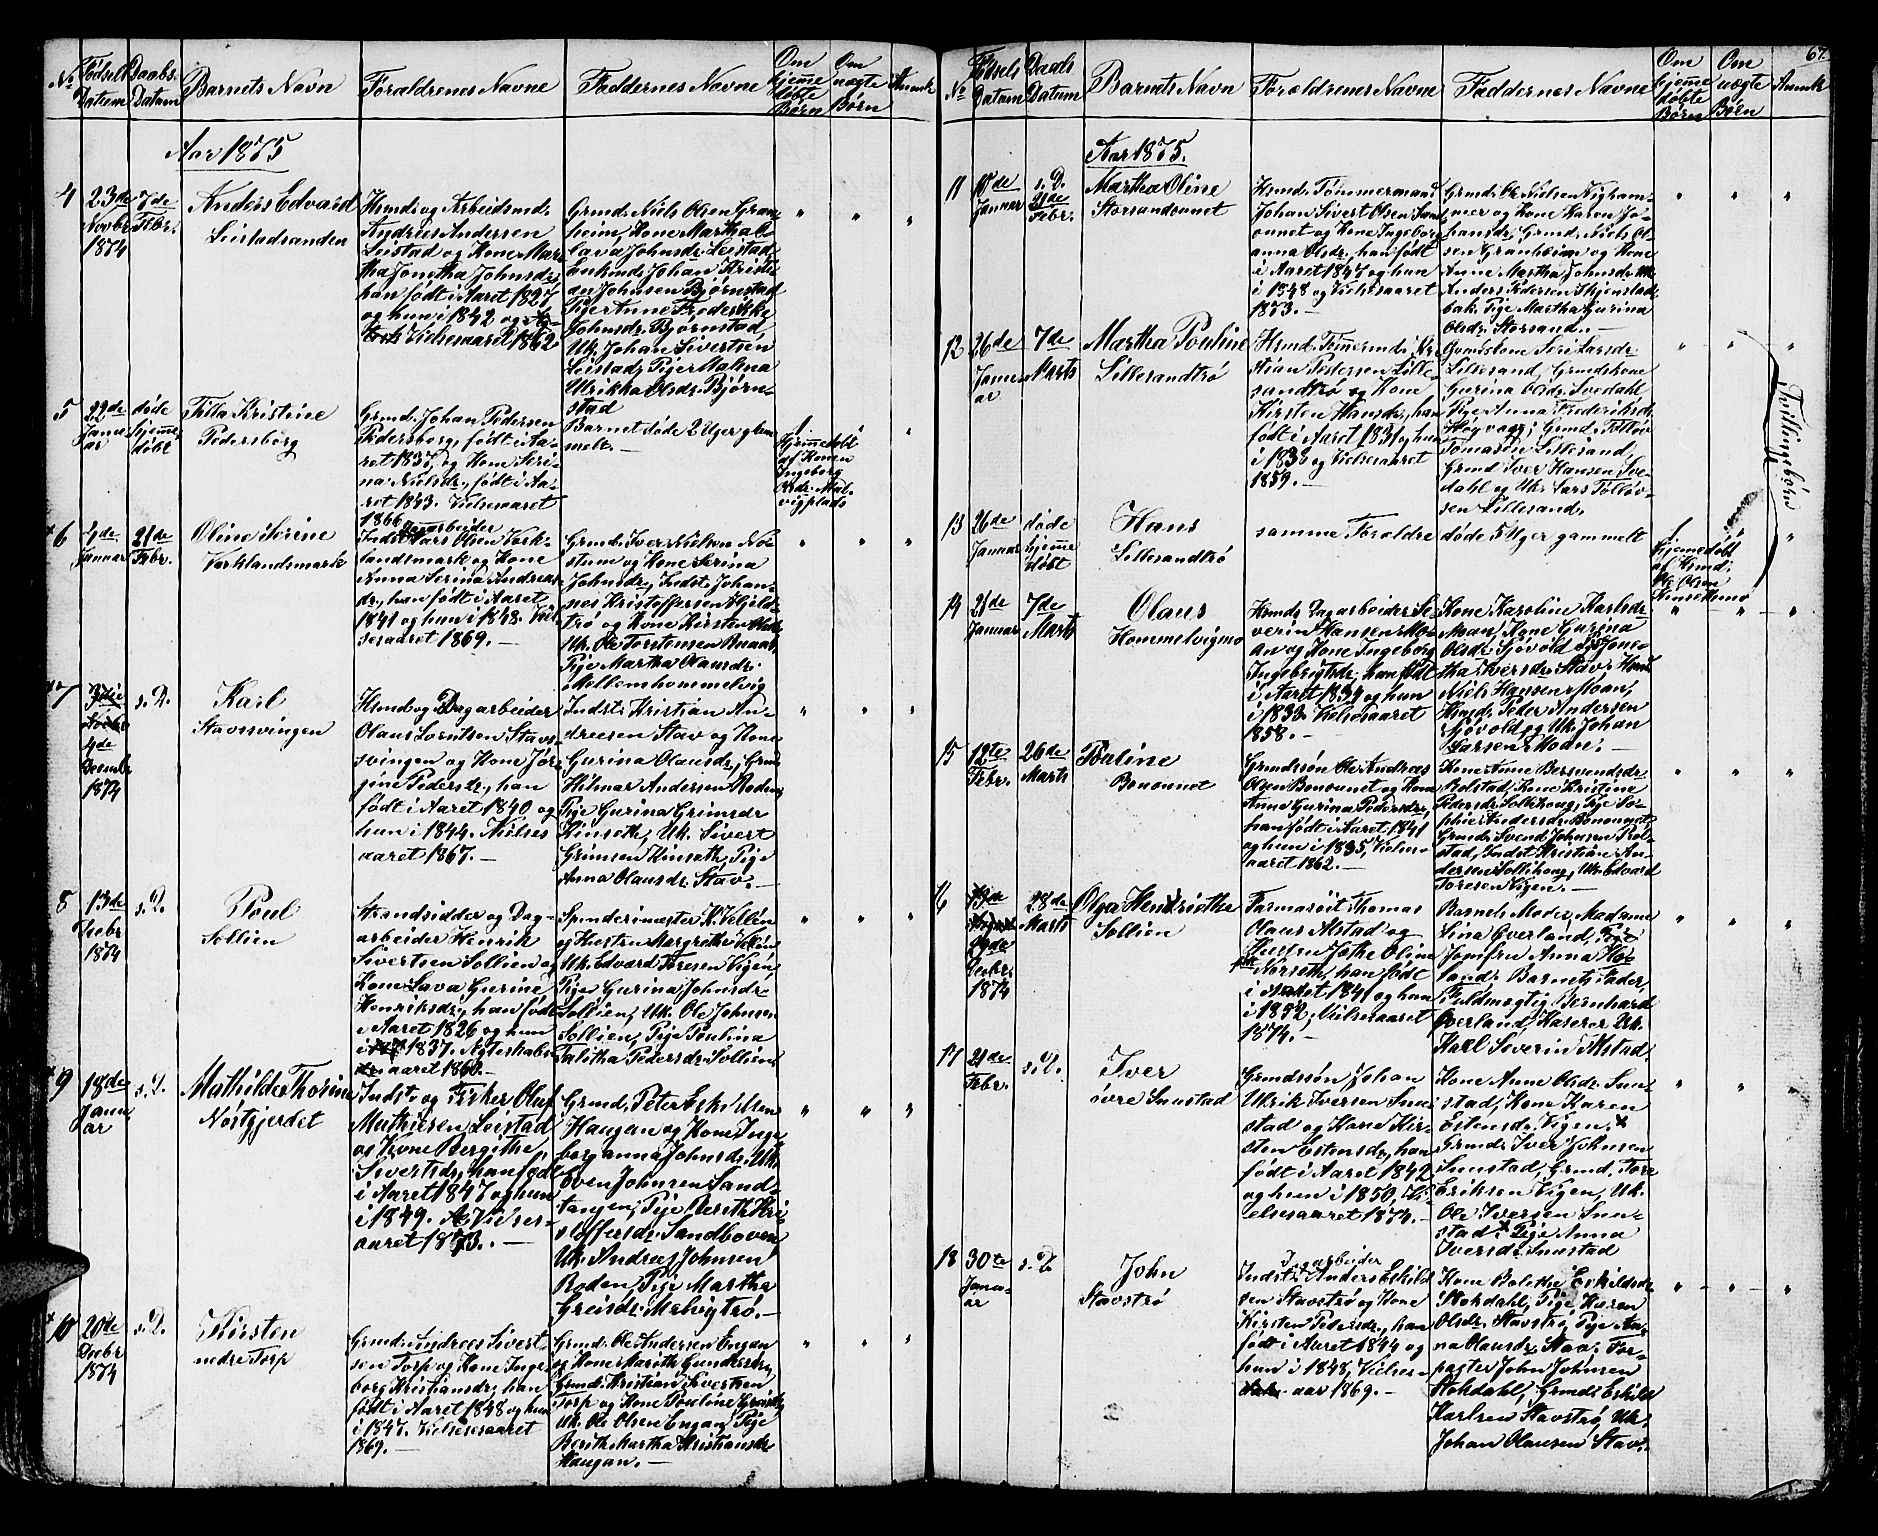 67.
No Fødsels Datum
Daabs Datum
Barnets Navn
Forældrenes Navne
Faddernes Navne
Om hjemme døbte Børn
Om uægte Børn
Anmk
Aar 1875
4
23de Novbr 1874
7de Febr.
Anders Edvard
Leistadsanden
Hsmd. og Arbeidsmd.
Andreas Andersen
Leistad og Kone Mar-
tha Jonetha Johnsdr.,
han født i Aaret 1827
og hun i 1842 og
Vielsesaaret 1862
Grmd. Niels Olsen Gran-
heim, Kone Martha O-
lava Johnsdr. Leistad,
Enkmd. Johan Kristi-
an Johnsen Bjørnstad
Pige Anne Frederikke
Johnsdr. Bjørnstad,
Uk. Johan Sivertsen
Leistad, Pige Malena
Ulrikka Olsdr. Bjørn-
stad
5
22de Janu-
ar
døde
hjemme
døbt
Kristine
Pedersborg
Grmd. Johan Pedersen
Pedersborg, født i Aa-
ret 1837 og Kone Seri-
na Nielsdr., født i Aa-
ret 1843. Vielsesaaret
1866
Barnet døde 2 Uger gam-
melt.
Hjemmedøbt
af Konen
Ingeborg
Olsdr. Mal-
vigplads
6
4de Januar
21de Febr.
Oline Serine
Varklandsmark
Dagarbeider
Inderst Lars Olsen Vark-
landsmark og Kone
Anna Serina Andreas-
dr., han født i Aaret
1841 og hun i 1848. Viel-
sesaaret 1869.
Grmd. Iver Nielsen No-
stum og Kone Serina
Johnsdr., Indst. Johan-
nes Kristoffersen Hjeld-
trø og Kone Kirsten Olsdr.
Uk. Ole Torstensen Buaas,
Pige Martha Olausdr.
Mellemhommelvig
7
4de
Decembr
1874
s. D.
Karl
Stavssvingen
Hsmd. og Dagarbeider
Olaus Lorntsen Stavs-
svingen og Kone Jør-
gine Pedersdr., han
født i Aaret 1840 og
hun i 1844. Vielses-
aaret 1867.
Indst. Kristian An-
dreesen Stav og Kone
Gurina Olausdr., Grmd.
Hilmar Andersen Roden,
Pige Gurina Grimsdr.
Kinseth, Uk. Sivert
Grimsen Kinseth, Pige
Anna Olausdr. Stav.
8
13de
Decbr
1874
s. D.
Poul
Sollien
Strandsidder og Dag-
arbeider Henrik
Sivertsen Sollien og
Kone Lava Gurine
Henriksdr., han født
i Aaret 1826 og hun
i 1837. Ægteskabs-
aaret 1860.
Spinderimester K. Vellén
og Hustru Margrethe Vellén
Uk. Edvard Toresen Vigen,
Pige Gurina Johnsdr.
Sollien, Uk. Ole Johnsen
Sollien, Pige Poulina
Talitha Pedersdr. Sollien
9
18de
Janu
ar
s. D.
Mathilde Thorine
Nostgjerdet
Indst. og Fisker Oluf
Mathiesen Leistad
og Kone Bergithe
Sivertsdr., han født
i Aaret 1847 og hun
i 1849. Vielses-
aaret 1873.
Grmd. Peter Eskildsen
Haugan og Kone Inge-
borganna Johnsdr. Uk.
Even Johnsen Sand-
tangen, Pige Berith Kri-
stoffersdr. Sandboven,
Uk. Andreas Johnsen
Roden, Pige Martha
Greisdr. Malvigtrø.
10
20de
Decbr
1874
s. D.
Kirsten
nedre Torp
Grmd. Andreas Sivert-
sen Torp og Kone Inge-
borg Kristiansdr., han
født i Aaret 1848 og hun
i 1847. Vielsesaaret
1869.
Grmd. Ole Andersen Engan
og Kone Marith Gundersdr.,
Grmd. Kristian Sivertsen
Torp og Kone Pouline
Uk. Ole Olsen Engan, Pige
Berith Martha Kristiansdr.
Haugan.
No
Fødsels Datum
Daabs Datum
Barnets Navn
Forældrenes Navne
Faddernes Navne
Om hjemme døbte Børn
Om uægte Børn
Anmk
Aar 1875.
11
18de
Januar
s. D.
21de
Febr.
Martha Oline
Storsandounet
Hsmd. Tømmermand
Johan Sivert Olsen Sand-
ounet og Kone Ingeborg
anna Olsdr., han født
i Aaret 1847 og hun
i 1848 og Vielsesaaret
1873.
Grmd. Ole Nielsen Nyham-
mer og Kone Karen Jo-
hansdr., Grmd. Niels Ol-
sen Granheim og Kone
Anne Martha Johnsdr. Uk.
Anders Pedersen Skjenstad-
bak, Pige Martha Gurina
Olsdr. Storsand.
12
26de
Janu
ar
7de
Marts
Martha Pouline
Lillesandtrø
Hsmd. Tømmermd. Kri-
stian Pedersen Lille-
sandtrø og Kone
Kirsten Hansdr., han
født i Aaret 1831 og hun
i 1838 og Vielsesaaret
1859.
Grmdskone Siri Larsdr.
Lillesand, Grmdskone
Gurina Olsdr. Svedahl
Pige Anna Frederiksdr.
Grmd. Tollev
Tomasen Lillesand,
Grmd Iver Hansen Sve-
dahl og Uk. Lars Tollev-
sen Lillesand.
Tvillingebørn
13
26de
Januar
døde
hjemme
døbt
Hans
Lillesandtrø
samme Forældre
døde 5 Uger gammelt
Hjemmedøbt
af Hsmd.
Ole Olsen
14
21de
Januar
7de
Marts
Olaus
Hommelvigmo
Hsmd. Dagarbeider Se-
verin Hansen Mo-
an og Kone Ingeborg
Ingebrigtsdr., han født
i Aaret 1834 og hun
i 1833. Vielsesaaret
1858.
Kone Karoline Karlsdr.
Moan, Kone Gurina
Olsdr. Sjøvold, Pige Jone-
tha Iversdr. Stav, Hsmd.
Niels Hansen Moan,
Hsmd. Peder Andersen
Sjøvold og Uk. Johan
Larsen Moan.
15
12te
Febr.
26de
Marts
Pouline
Bonounet
Grmdssøn Ole Andreas
Olsen Bonounet og Kone
Anne Gurina Pedersdr.,
han født i Aaret 1841
og hun i 1835, Vielses-
aaret 1862.
Kone Anne Bersvendsdr.
Rolstad, Kone Kristine
Pedersdr. Solbakhaug, Pige So-
phie Andersdr. Bonounet
Grmd. Svend Johnsen Rol-
stad, Indst. Kristian An-
dersen Solbakhaug, Uk. Edvard
Toresen Vigen.
16
Decbr.
1874
28de
Marts
Olga Henriethe
Sollien
Farmasöit Thomas
Olaus Alstad og
Hustru Jakobe Oline
Norseth, han født
i Aaret 1841 og hun
i 1852, Vielsesaaret
1874.
Barnets Moder, Madame
Lina Overland,
Jomfru Anna
Barnets Fader,
Fuldmægtig Bernhard
Overland, Kaserer Uk.
Karl Severin Alstad
17
21de
Febr.
s. D.
Iver
øvre Snustad
Grmdssøn Johan
Ulrik Iversen Snu-
stad og Kone Kir-
sten Estensdr., han
født i Aaret 1842
og hun i 1850, Vi-
elsesaaret 1874.
Kone Anne Olsdr. Snu-
stad, Kone Karen
Estensdr. Vigen,
Grmd. Iver Johnsen
Snustad, Grmd. Tore
Eriksen Vigen, Uk.
Ole Iversen Snu-
stad Pige Anna
Iversdr. Snustad
18
30te
Janu-
ar
s. D
John
Stavstrø
Dagarbeider
Indst. Anders Eskild-
sen Stavstrø og Kone
Kirsten Pedersdr., han
født i Aaret 1844 og
hun i 1848, Vielses-
aar 1869.
Kone Bolethe Eskildsdr.
Stokdahl, Pige Karen
Olsdr. Stavstrø, Pige An-
na Olausdr. Stav, For-
pagter John Johnsen
Stokdahl, Grmd. Eskild
Karlsen Stavstrø, Uk.
Johan Olausen Stav.